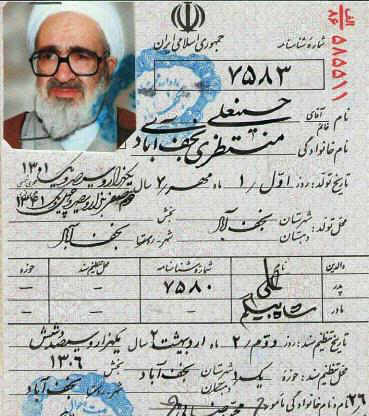 الف ۸۶ ۵۸۵۵۱۱
جمهوری اسلامی ایران
شمارهٔ شناسنامه
۷۵۸۳
نام آقای خانم حسینعلی
نام خانوادگی منتظری نجف آبادی
تاریخ تولد: روز اول /۱ ماه مهر /۷ سال یکهزار و سیصد و یک ۱۳۰۱
۱۳۴۱
محل تولد: شهرستان دهستان نجف آباد بخش شهر - روستا نجف آباد
والدین نام شمارهٔ شناسنامه محل تنظیم سند حوزه
پدر علی ۷۵۸۰ – –
مادر شاه بیگم – – –
تاریخ تنظیم سند: روز دوم /۲ ماه اردیبهشت /۲ سال یکهزار و سیصد و شش
۱۳۰۶
محل تنظیم سند: حوزه یک شهرستان دهستان نجف آباد بخش شهر - روستا نجف آباد
نام و نام خانوادگی مأمور